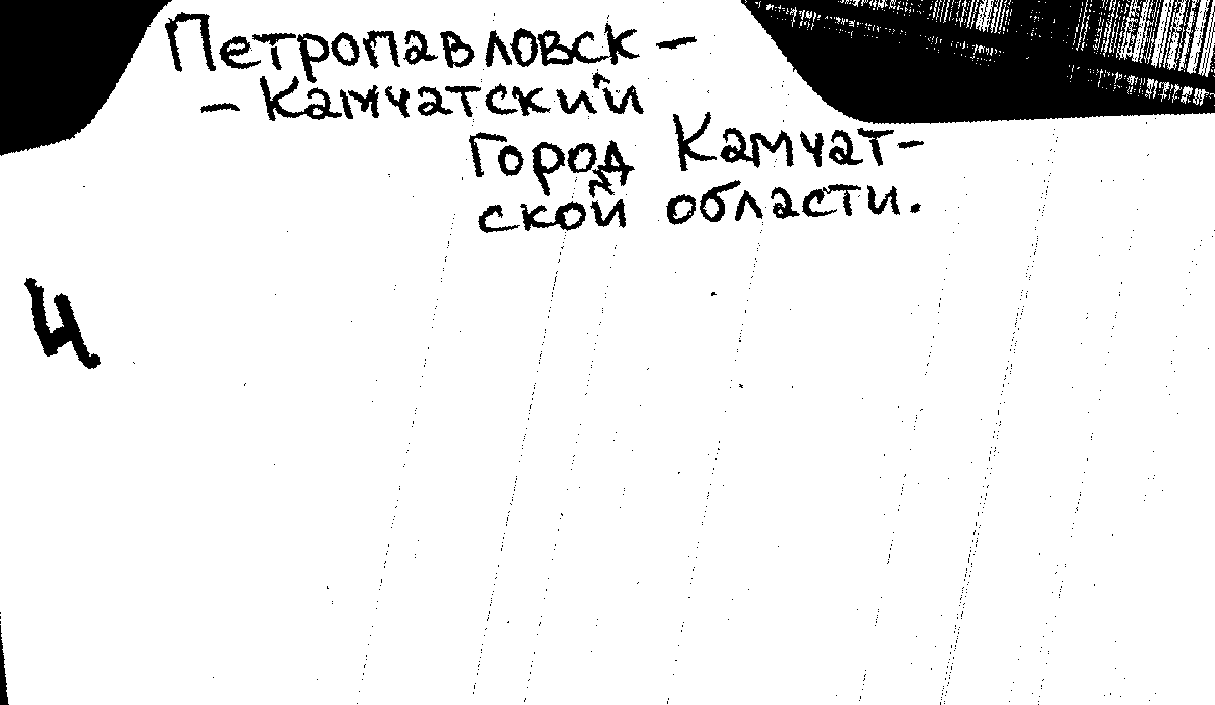 Петропавловск -
- Камчатский
Город Камчат-
ской области.
Ч